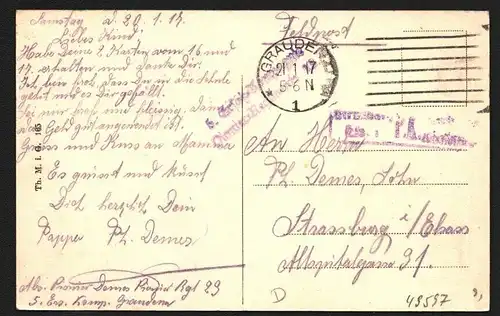 Samstag d 20. 1. 17.
Liebes Kind!
Habe Deine 2 Karten vom 16 und
17. erhalten und danke Dir.
bin froh, dass Du in die Schule
gehst und es Dir gefällt.
Sei nur brav und fleissig,
das Geld gut angewandt ist.
Gruss und Kuss an Mamma
Es grüsst und küsst
Dich herzlich Dein
Pappa Ph. Demes
Abs. Pionier Demes Pionier Rgt 29
5. Ers. Komp. Graudenz
Th. M. i. G. 165
Feldpost
GRAUDENZ
21. 1. 17
5-6 N
1
An Herrn
Ph. Demes, Sohn
Strassburg i/Elsass
Altspitalgasse 91.
D
49597